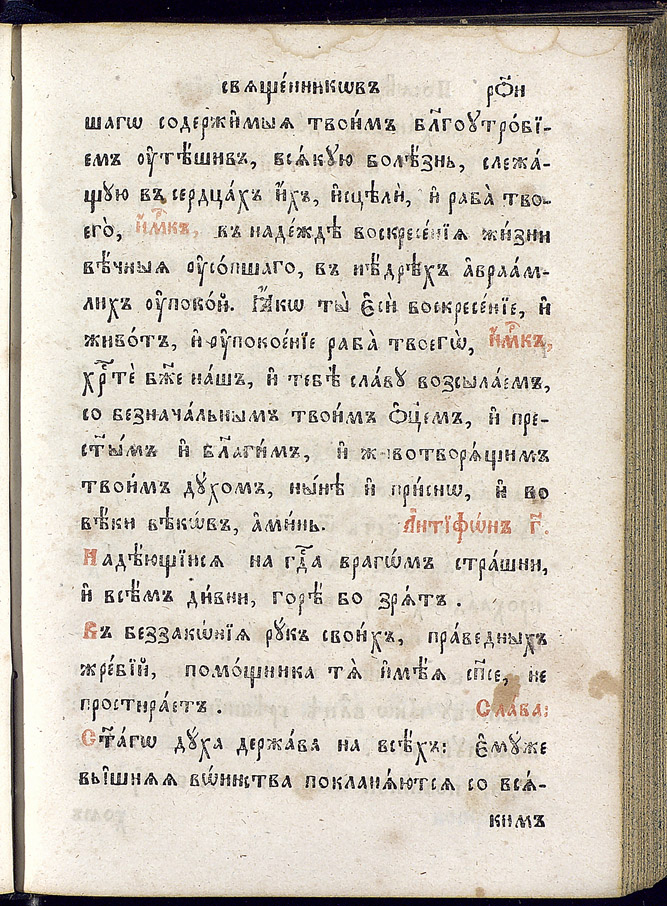 свяще́нникѡвъ рѻ҃и
шагѡ содержи̑мыѧ твои́мъ бл҃гоꙋтро́бї-
емъ ᲂу҆тѣ́шивъ, всѧ́кꙋю болѣ́знь, слежа́-
щꙋю въ сердца́хъ и҆́хъ, и҆сцѣлѝ, и҆ раба̀ тво-
его̀, и҆́м҃къ, въ наде́ждѣ воскресе́нїѧ жи́зни
вѣ́чныѧ ᲂу҆со́пшаго, въ нѣ́дрѣхъ а҆враа́м-
лихъ ᲂу҆поко́й. Ꙗ҆́кѡ ты̀ є҆сѝ воскресе́нїе, и҆
живо́тъ, и҆ ᲂу҆покое́нїе раба̀ твоегѡ̀, и҆́м҃къ,
хрⷭ҇тѐ бж҃е на́шъ, и҆ тебѣ̀ сла́вꙋ возсыла́емъ,
со безнача́льнымъ твои́мъ ѻ҆ц҃е́мъ, и҆ пре-
ст҃ы́мъ и҆ бл҃ги́мъ, и҆ животворѧ́щимъ
твои́мъ дꙋ́хомъ, ны́нѣ и҆ при́снѡ, и҆ во
вѣ́ки вѣкѡ́въ, а҆ми́нь. А҆нтїфѡ́нъ г҃.
Надѣ́ющїисѧ на гдⷭ҇а врагѡ́мъ стра́шни,
и҆ всѣ́мъ ди́вни, горѣ́ бо зрѧ́тъ.
Въ беззакѡ́нїѧ рꙋ́къ свои́хъ, пра́ведныхъ
жре́бїй, помо́щника тѧ̀ и҆мѣ́ѧ сп҃се, не
простира́етъ. Сла́ва:
Ст҃а́гѡ дꙋ́ха держа́ва на всѣ́хъ: є҆мꙋ́же
вы́шнѧѧ вѡ́инства покланѧ́ютсѧ со всѧ́-
кимъ